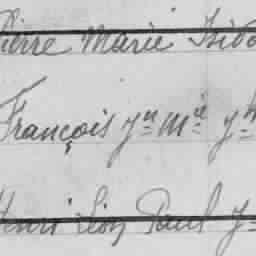 Pierre Marie Isido
François Jn Mie Jh
Henri Léon Paul J